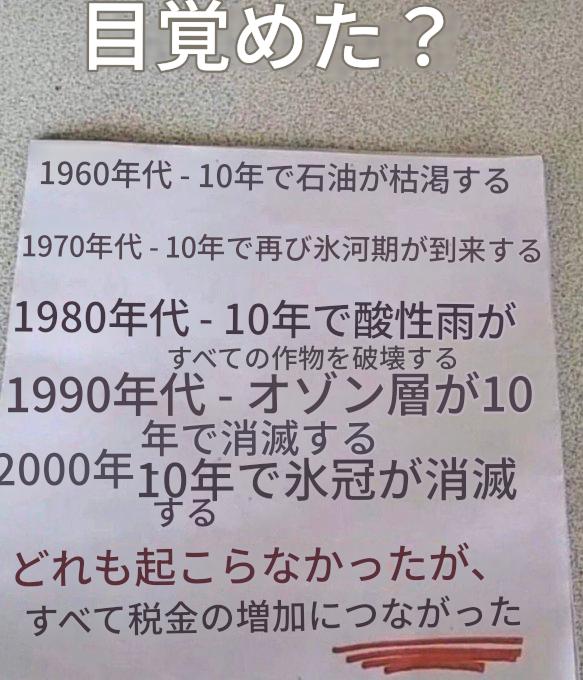 目覚めた？
1960年代 - 10年で石油が枯渇する
1970年代 - 10年で再び氷河期が到来する
1980年代 - 10年で酸性雨が
すべての作物を破壊する
1990年代 - オゾン層が10
年で消滅する
2000年 10年で氷冠が消滅
する
どれも起こらなかったが、
すべて税金の増加につながった